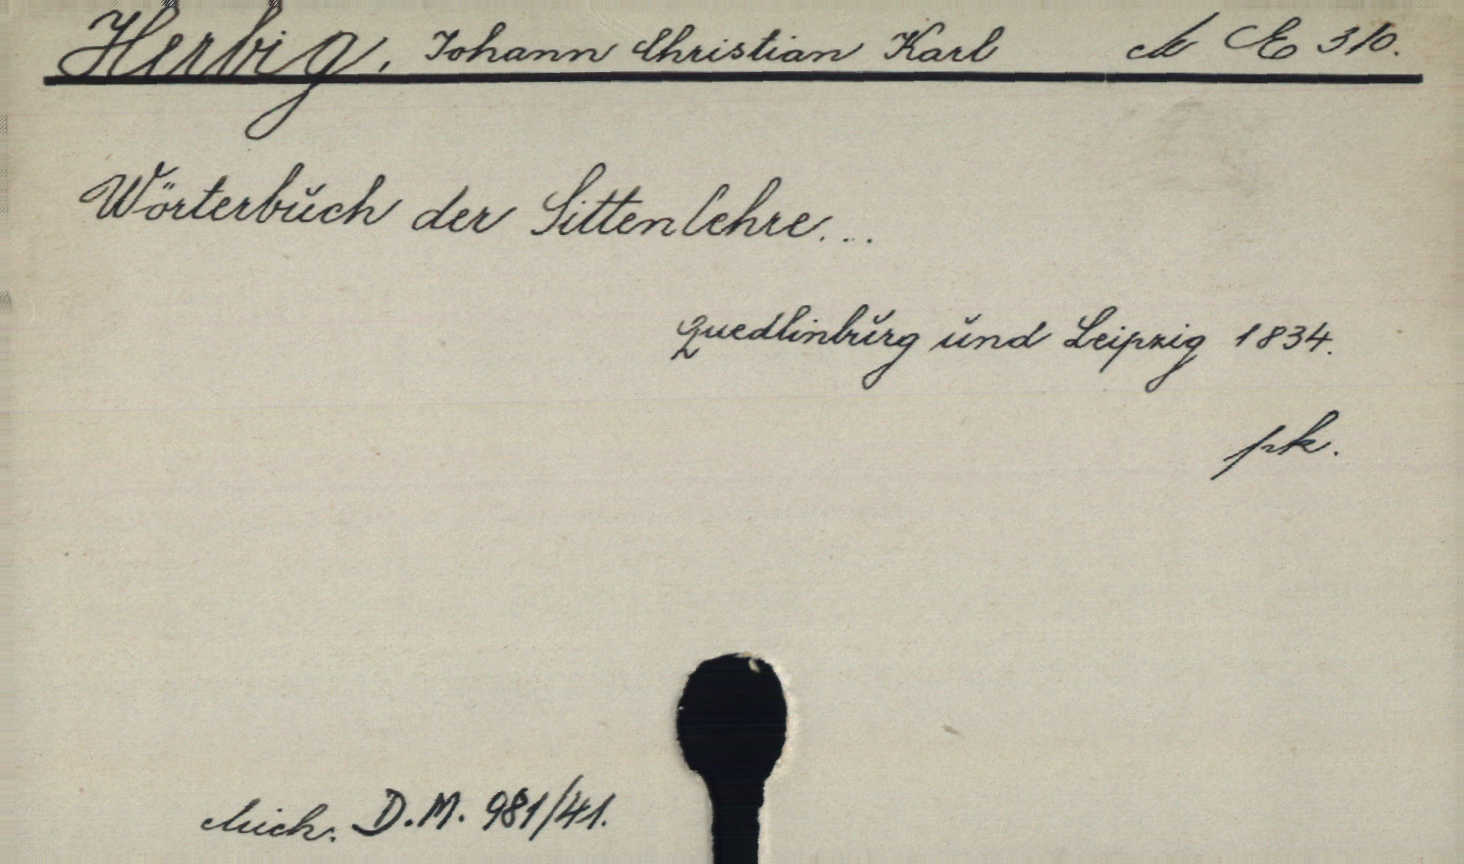 Herbig, Johann Christian Karl M E 310.
Wörterbuch der Sittenlehre...
Quedlinburg und Leipzig 1834.
pk.
Mich. D.M. 981/41.